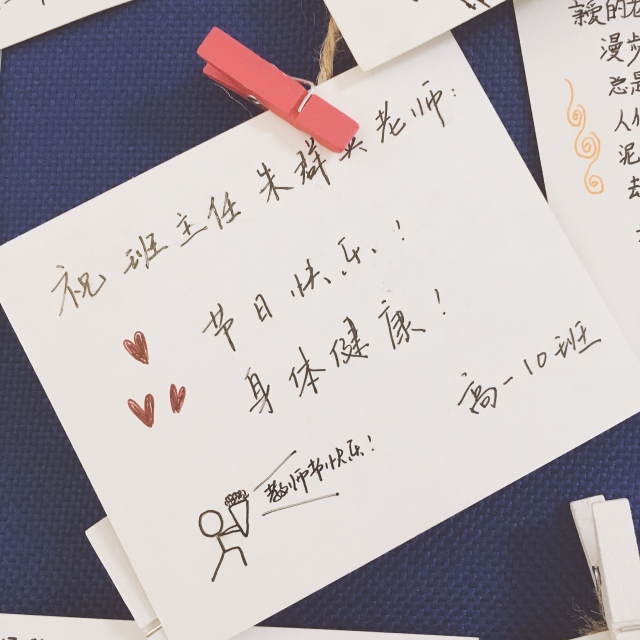 祝班主任朱群英老师:
节日快乐!
身体健康!
高一10班
教师节快乐!
漫步
总是
人们
泥
去